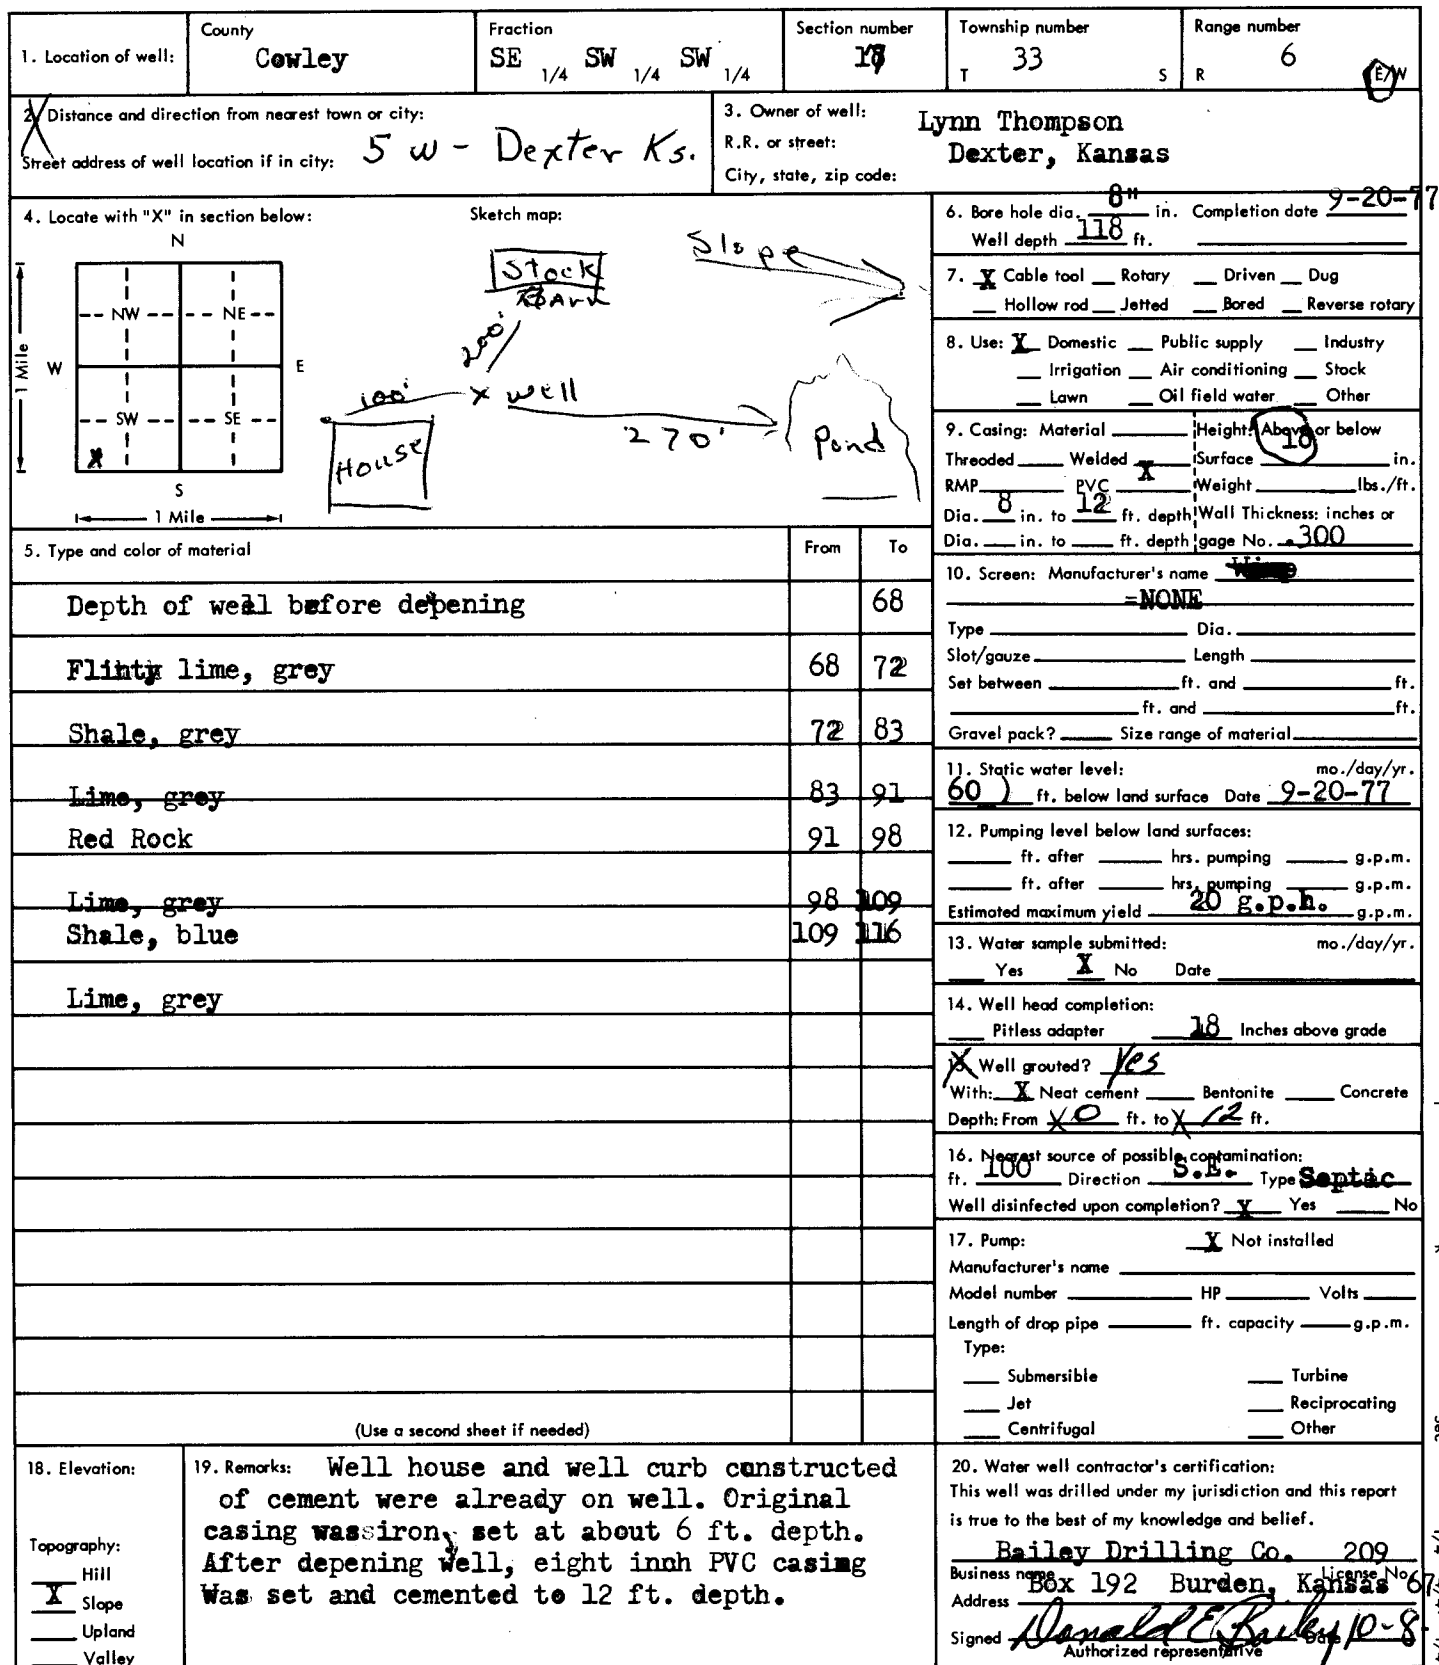 1. Location of well: County Cowley Fraction SE 1/4 SW 1/4 SW 1/4 Section number Township number T 33 S Range number R 6 E/W
2. Distance and direction from nearest town or city:
Street address of well location if in city: 5 w - Dexter Ks.
3. Owner of well: Lynn Thompson
R.R. or street: Dexter, Kansas
City, state, zip code:
4. Locate with "X" in section below:
N
NW NE
W E
SW SE
X
S
1 Mile
1 Mile
Sketch map:
Slope
Stock
Barn
200'
100' X well
270'
House
Pond
5. Type and color of material From To
Depth of well before depening 68
Flinty lime, grey 68 72
Shale, grey 72 83
Lime, grey 83 91
Red Rock 91 98
Lime, grey 98 109
Shale, blue 109 116
Lime, grey
(Use a second sheet if needed)
6. Bore hole dia. 8" in. Completion date 9-20-77
Well depth 118 ft.
7. X Cable tool Rotary Driven Dug
Hollow rod Jetted Bored Reverse rotary
8. Use: X Domestic Public supply Industry
Irrigation Air conditioning Stock
Lawn Oil field water Other
9. Casing: Material Height: Above or below
Threaded Welded Surface 18 in.
RMP PVC X Weight lbs./ft.
Dia. 8 in. to 12 ft. depth Wall Thickness: inches or
Dia. in. to ft. depth gage No. .300
10. Screen: Manufacturer's name
=NONE
Type Dia.
Slot/gauze Length
Set between ft. and ft.
ft. and ft.
Gravel pack? Size range of material
11. Static water level: mo./day/yr.
60 ) ft. below land surface Date 9-20-77
12. Pumping level below land surfaces:
ft. after hrs. pumping g.p.m.
ft. after hrs. pumping g.p.m.
Estimated maximum yield 20 g.p.h. g.p.m.
13. Water sample submitted: mo./day/yr.
Yes X No Date
14. Well head completion:
Pitless adapter 18 Inches above grade
15. Well grouted? Yes
With: X Neat cement Bentonite Concrete
Depth: From X 0 ft. to X 12 ft.
16. Nearest source of possible contamination:
ft. 100 Direction S.E. Type Septic
Well disinfected upon completion? X Yes No
17. Pump: X Not installed
Manufacturer's name
Model number HP Volts
Length of drop pipe ft. capacity g.p.m.
Type:
Submersible Turbine
Jet Reciprocating
Centrifugal Other
18. Elevation:
Topography:
Hill
X Slope
Upland
Valley
19. Remarks: Well house and well curb constructed
of cement were already on well. Original
casing was iron, set at about 6 ft. depth.
After depening well, eight innh PVC casing
Was set and cemented to 12 ft. depth.
20. Water well contractor's certification:
This well was drilled under my jurisdiction and this report
is true to the best of my knowledge and belief.
Bailey Drilling Co. 209
Business name License No.
Address Box 192 Burden, Kansas 67
Signed Donald E Bailey Date 10-8-
Authorized representative